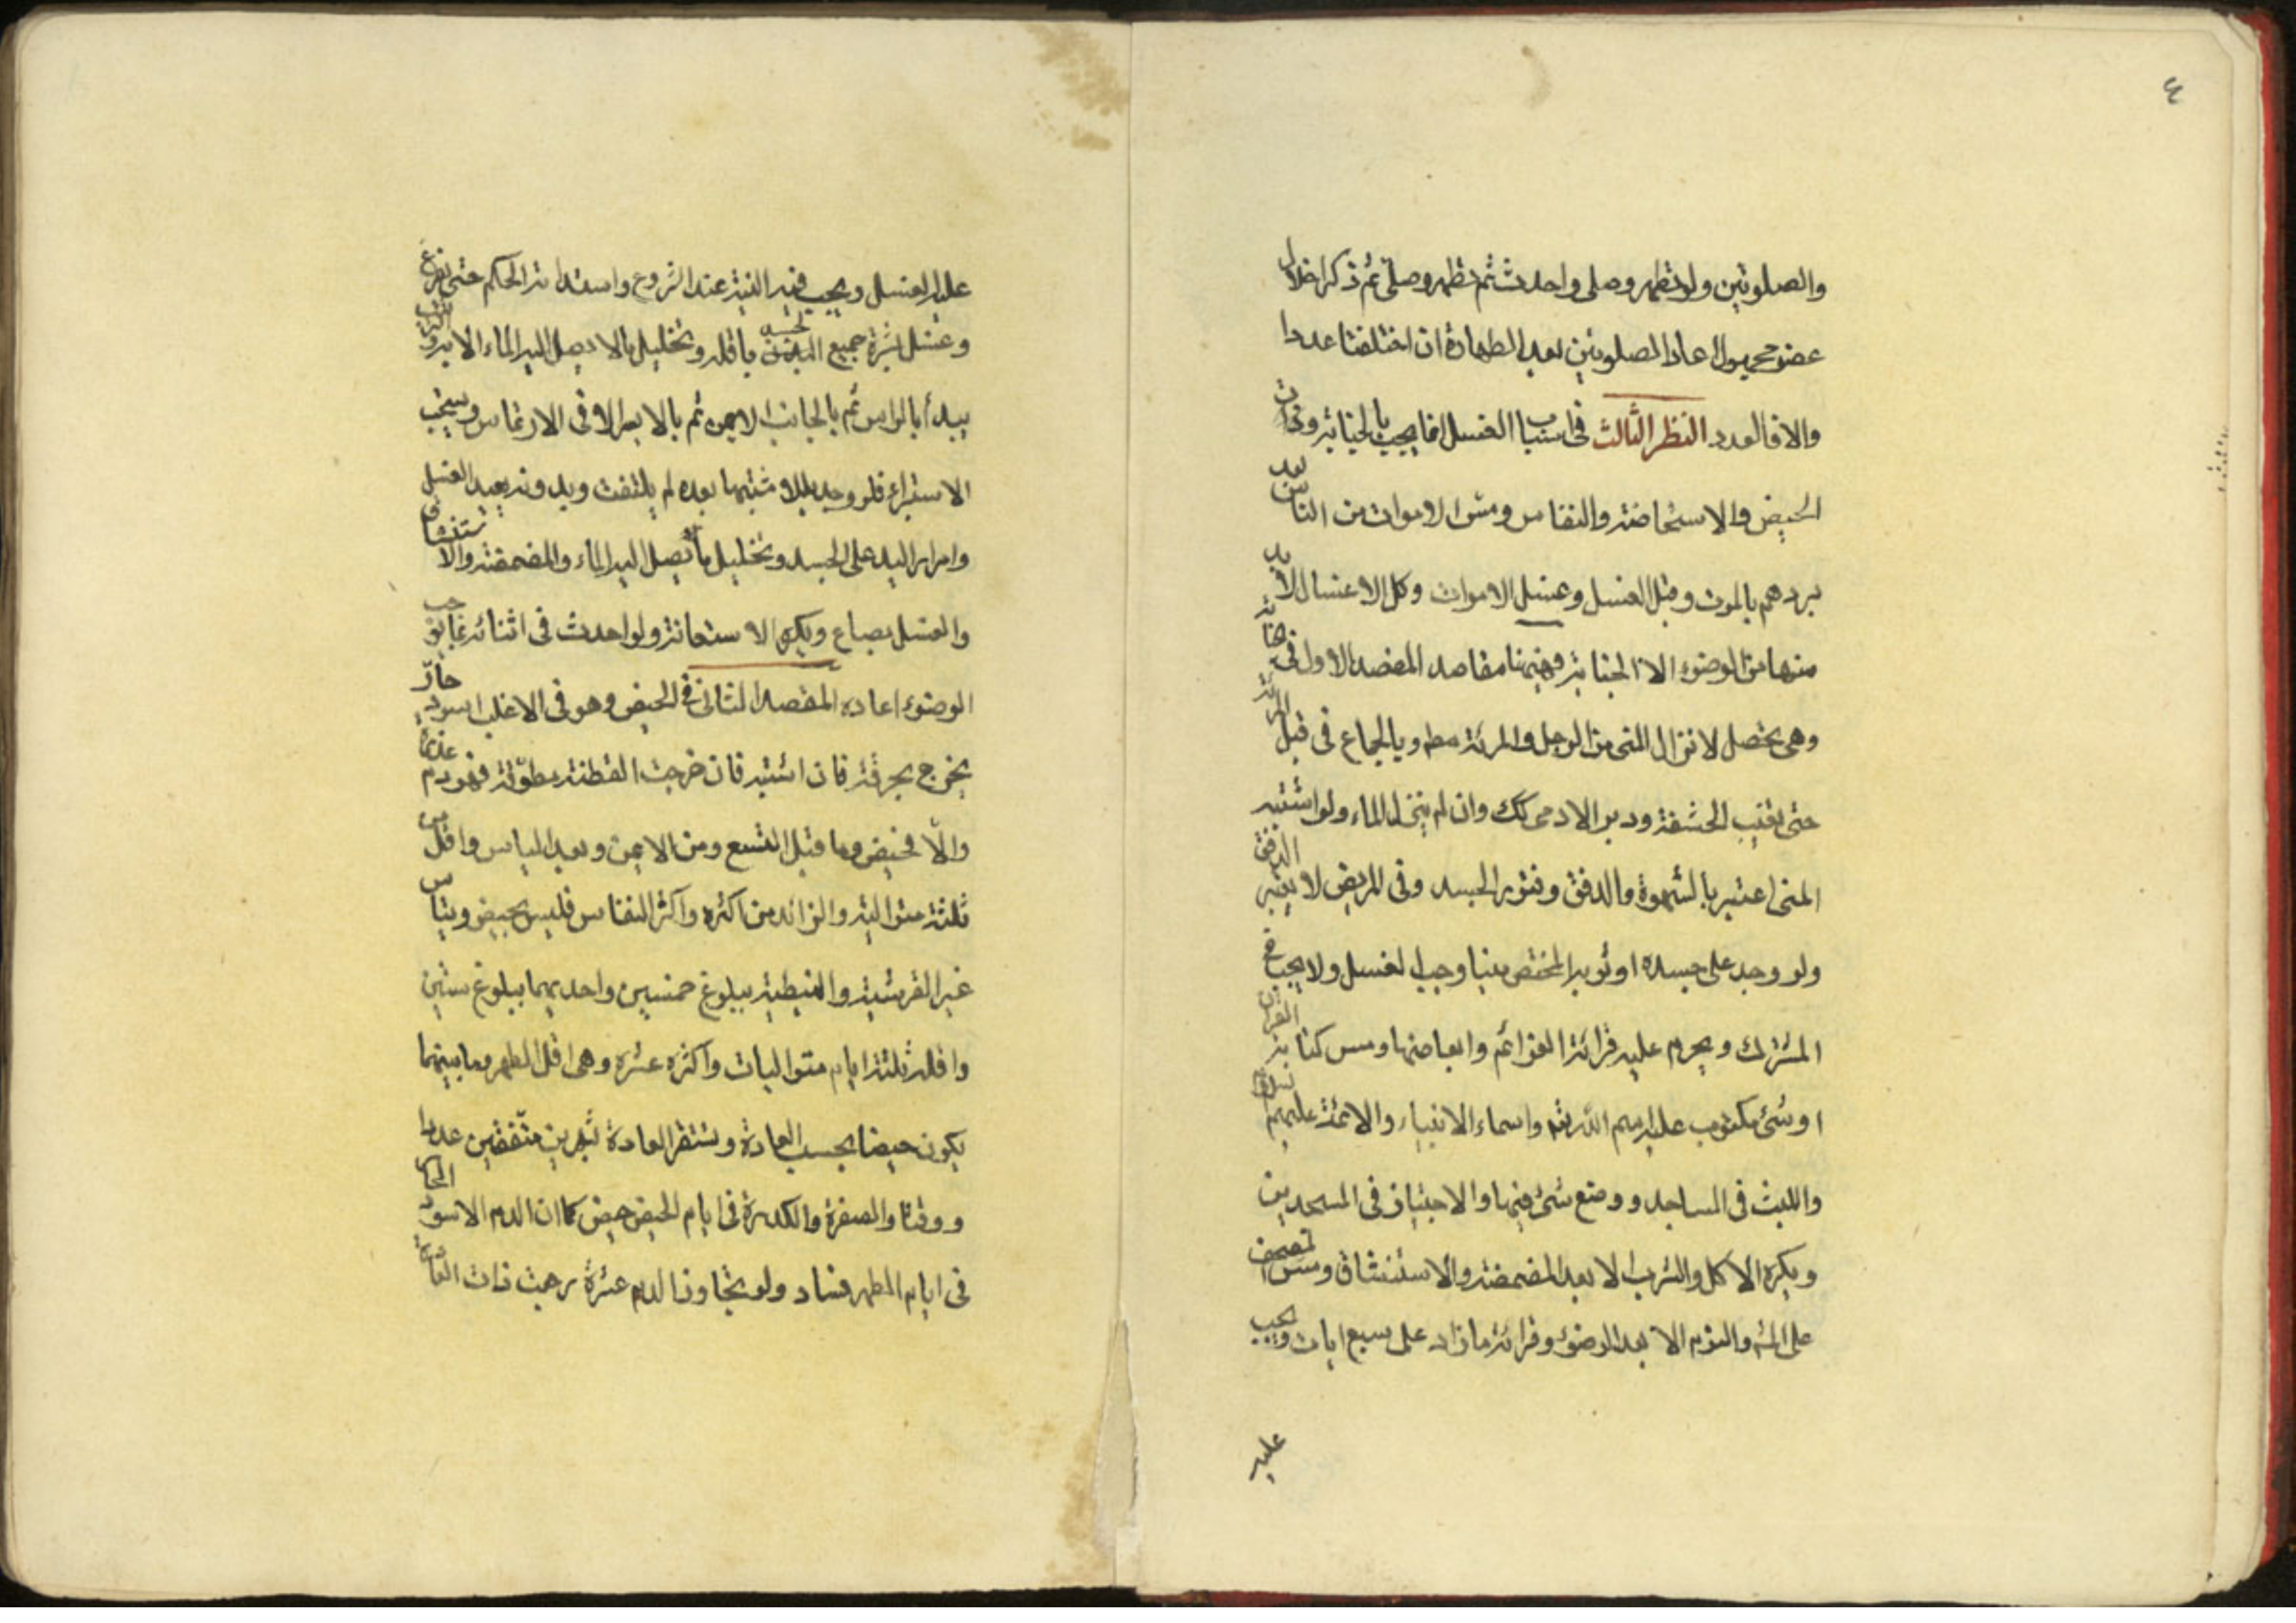 ٤
والصلوتين ولو تطهر وصلى واحدث ثم تطهر وصلى ثم ذكر اخلال
عضو مجهول اعاد الصلوتين بعد الطهارة ان اختلفتا عددا
والا فالعدد النظر الثالث فى اسباب الغسل انما يجب بالجنابة
الحيض والاستحاضة والنفاس ومس الاموات من الناس بعد
بردهم بالموت وقبل الغسل وغسل الاموات وكل الاغسال لابد
منها من الوضوء الا الجنابة وهيهنا مقاصد المقصد الاول فى الجنابة
وهى تحصل لانزال المنى من الرجل والمرئة مطم وبالجماع فى قبل المرئة
حتى تغيب الحشفة ودبر الادمى كك وان لم ينزل الماء ولو اشتبه
المنى اعتبر بالشهوة والدفق وفتور الجسد وفى المريض لا يعتبر الدفق
ولو وجد على جسده او ثوبه المختص منيا وجب الغسل ولا يجب فى
المشترك ويحرم عليه قرائة العزائم وابعاضها ومس كتابة القران
او شئ مكتوب عليه اسم الله تعم واسماء الانبياء والائمة عليهم
واللبث فى المساجد ووضع شئ فيها والاجتياز فى المسجدين
ويكره الاكل والشرب الا بعد المضمضة والاستنشاق ومس المصحف
والنوم الا بعد الوضوء وقرائة مازاد على سبع ايات ويجب
عليه
عليه الغسل ويجب فيه النية عند الشروع واستدامة الحكم حتى يفرغ
وغسل بشرة جميع الجسد باقله وتخليل ما لا يصل اليه الماء الا به
يبدأ بالراس ثم بالجانب الايمن ثم بالايسر الا فى الارتماس ويستحب
الاستبراء فلو وجد بللا مشتبها بعده لم يلتفت وبدونه يعيد الغسل
وامرار اليد على الجسد وتخليل ما يصل اليه الماء والمضمضة والاستنشاق
والغسل بصاع ويكره الاستعانة ولو احدث فى اثنائه بما يوجب
الوضوء اعاده المقصد الثانى فى الحيض وهو فى الاغلب اسود حارّ
يخرج بحرقة فان اشتبه فان خرجت القطنة مطوّقة فهو دم عذرة
والّا فحيض وما قبل التسع ومن الايمن وبعد الياس واقل من
ثلثة متوالية والزائد من اكثره واكثر النفاس فليس بحيض وتياس
غير القرشية والنبطية ببلوغ خمسين واحديهما ببلوغ ستين
واقله ثلثة ايام متواليات واكثره عشرة وهى اقل الطهر وما بينهما
يكون حيضا بحسب العادة وتستقر العادة بشهرين متّفقين عددا
ووقتا والصفرة والكدرة فى ايام الحيض حيض كما ان الدم الاسود الحار
فى ايام الطهر فساد ولو تجاوز الدم عشرة رجعت ذات العادة